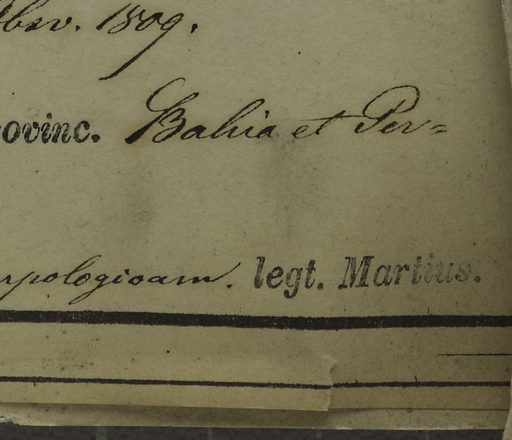 bev. 1809.
ovinc. Bahia et Per-
rpologioam. legt. Martius.